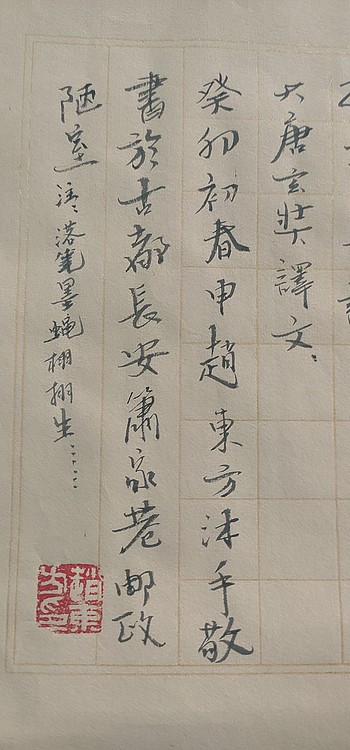 大唐玄奘譯文
癸卯初春申趙東方沐手敬
書於古都長安簫家巷邮政
陋室 落笔墨蝇栩栩生……
趙東方印